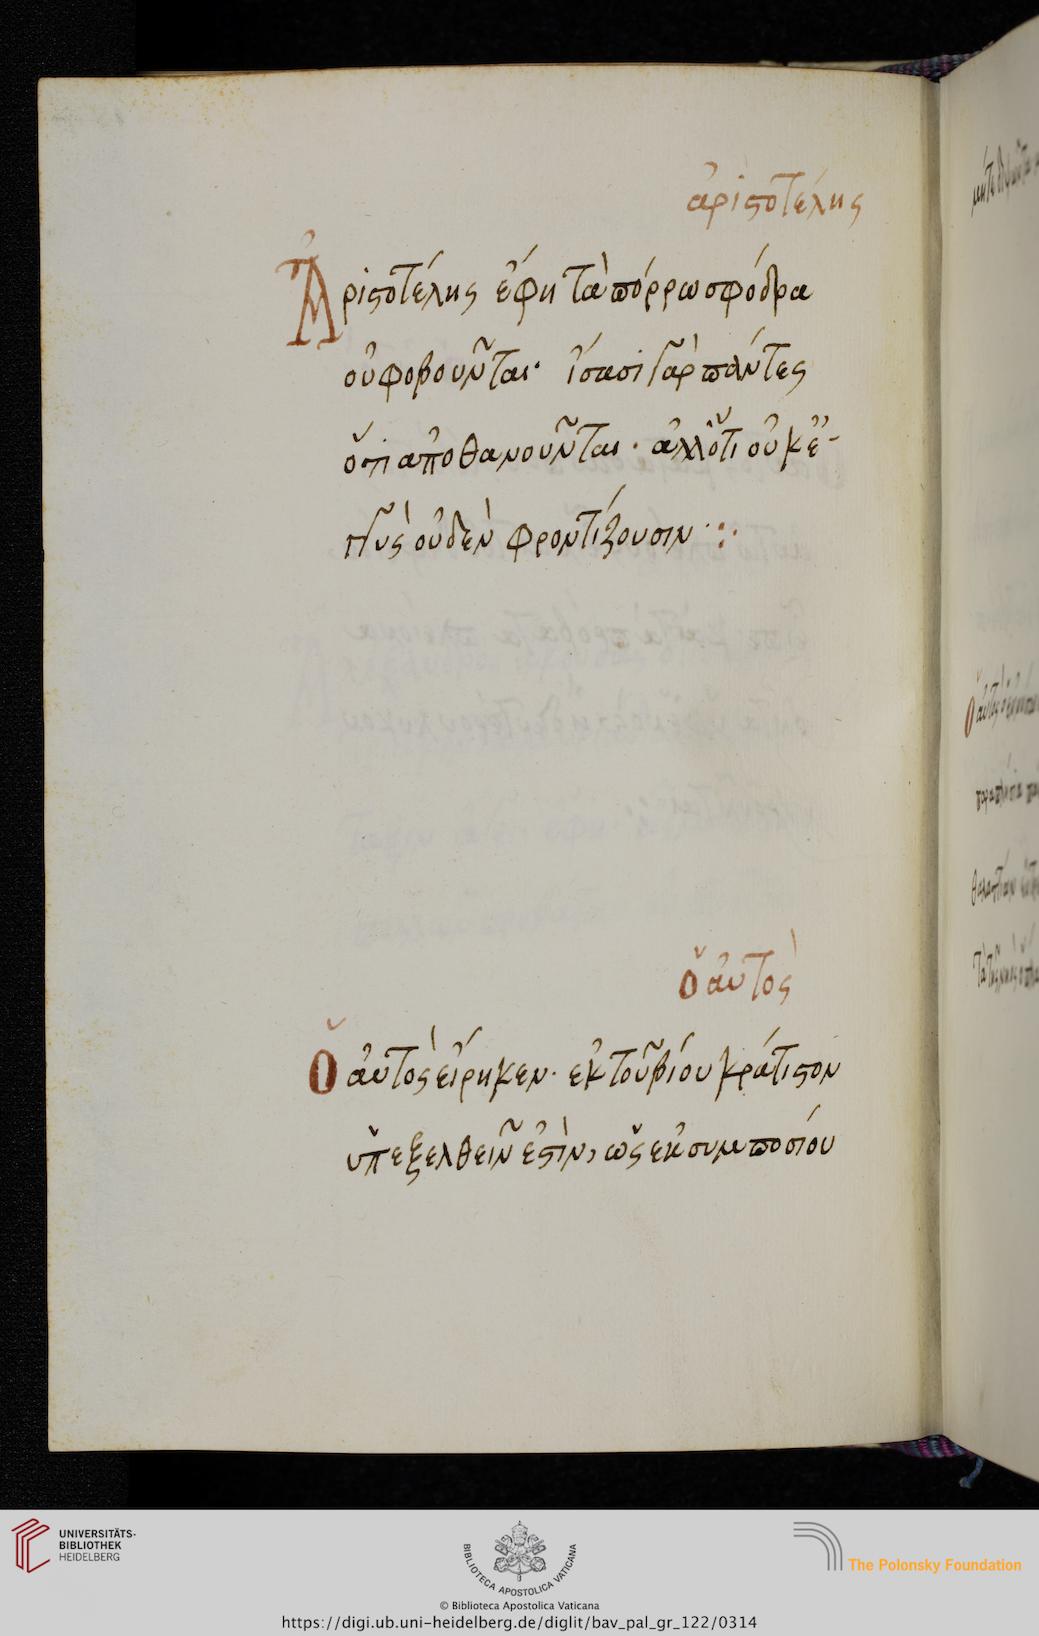 ἀριστοτέλης
Ἀριστοτέλης ἔφη τὰ πόρρω σφόδρα
οὐ φοβοῦνται· ἴσασι γὰρ πάντες
ὅτι ἀποθανοῦνται· ἀλλ' ὅτι οὐκ ἐγ-
γὺς οὐδὲν φροντίζουσιν ⁘
ὁ αὐτὸς
Ὁ αὐτὸς εἴρηκεν· ἐκ τοῦ βίου κράτιστον
ὑπεξελθεῖν ἐστὶν, ὡς ἐκ συμποσίου
UNIVERSITÄTS-
BIBLIOTHEK
HEIDELBERG
BIBLIOTECA APOSTOLICA VATICANA
The Polonsky Foundation
© Biblioteca Apostolica Vaticana
https://digi.ub.uni-heidelberg.de/diglit/bav_pal_gr_122/0314